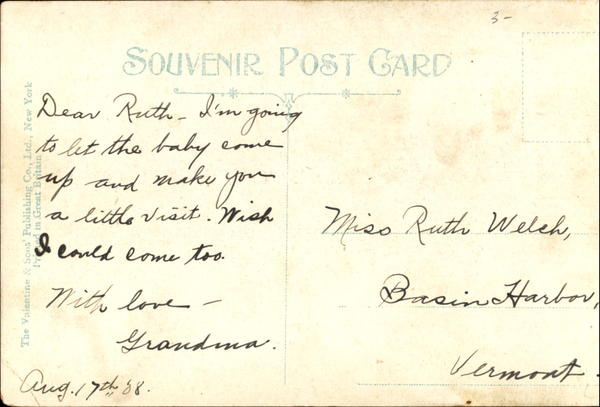 3-
SOUVENIR POST CARD
Dear Ruth - I'm going
to let the baby come
up and make you
a little visit. Wish
I could come too.
With love -
Grandma.
Aug. 17th, '38.
Miss Ruth Welch,
Basin Harbor,
Vermont.
The Valentine & Sons' Publishing Co., Ltd., New York
Printed in Great Britain